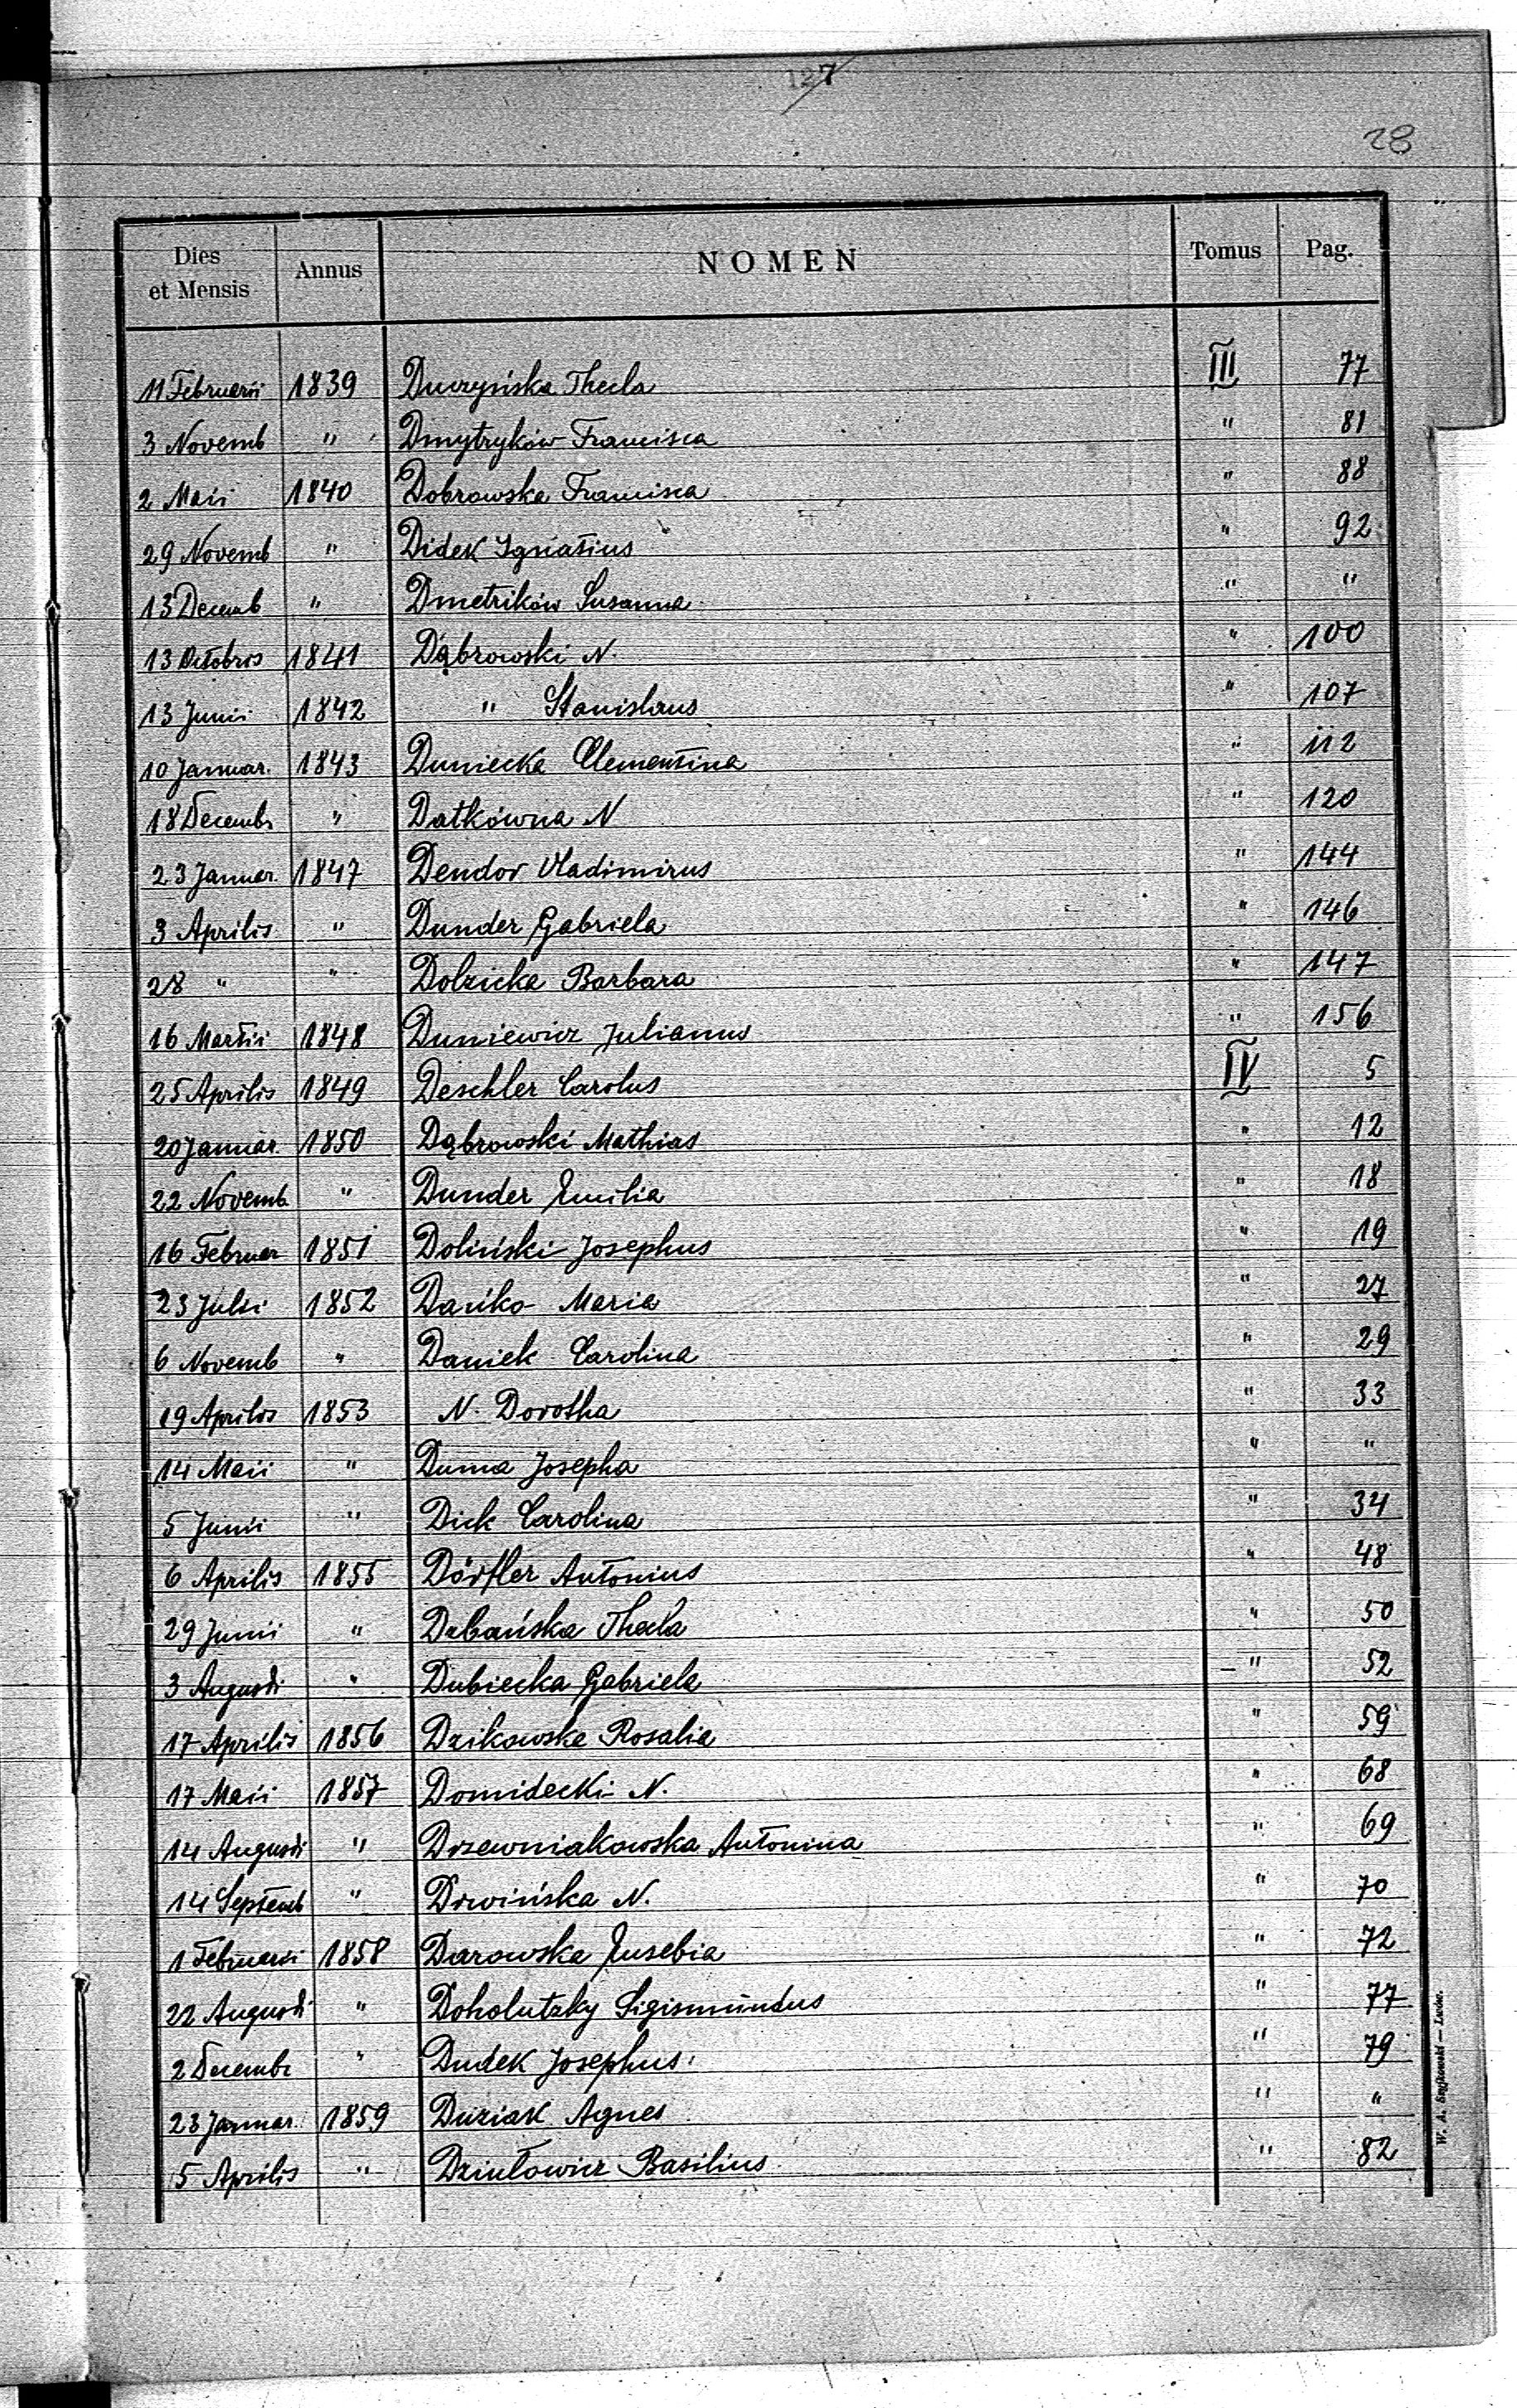 127
28
Dies et Mensis Annus NOMEN Tomus Pag.
11 Februarii 1839 Duczyńska Thecla III 77
3 Novemb " Dmytryków Francisca " 81
2 Maii 1840 Dobrowska Francisca " 88
29 Novemb " Didek Ignatius " 92
13 Decemb " Dmetrików Susanna " "
13 Octobris 1841 Dąbrowski N. " 100
13 Junii 1842 " Stanislaus " 107
10 Januar. 1843 Duniecka Clementina " 112
18 Decembr " Datkówna N " 120
23 Januar. 1847 Dendor Vladimirus " 144
3 Aprilis " Dunder Gabriela " 146
28 " " Dolzicka Barbara " 147
16 Martii 1848 Duniewicz Julianus " 156
25 Aprilis 1849 Deschler Carolus IV 5
20 Januar. 1850 Dąbrowski Mathias " 12
22 Novemb " Dunder Emilia " 18
16 Februar 1851 Doliński Josephus " 19
23 Julii 1852 Dańko Maria " 27
6 Novemb " Daniek Carolina " 29
19 Aprilis 1853 N. Dorotha " 33
14 Maii " Duma Josepha " "
5 Junii " Dick Carolina " 34
6 Aprilis 1855 Dörfler Antonius " 48
29 Junii " Dzbańska Thecla " 50
3 Augusti " Dubiecka Gabriela " 52
17 Aprilis 1856 Dzikowska Rosalia " 59
17 Maii 1857 Domidecki N. " 68
14 Augusti " Drzewniakowska Antonina " 69
14 Septemb " Drwińska N. " 70
1 Februarii 1858 Darowska Eusebia " 72
22 Augusti " Doholutzky Sigismundus " 77
2 Decembr " Dudek Josephus " 79
23 Januar. 1859 Duziak Agnes " "
5 Aprilis " Dziułowicz Basilius " 82
W. A. Szyjkowski — Lwów.